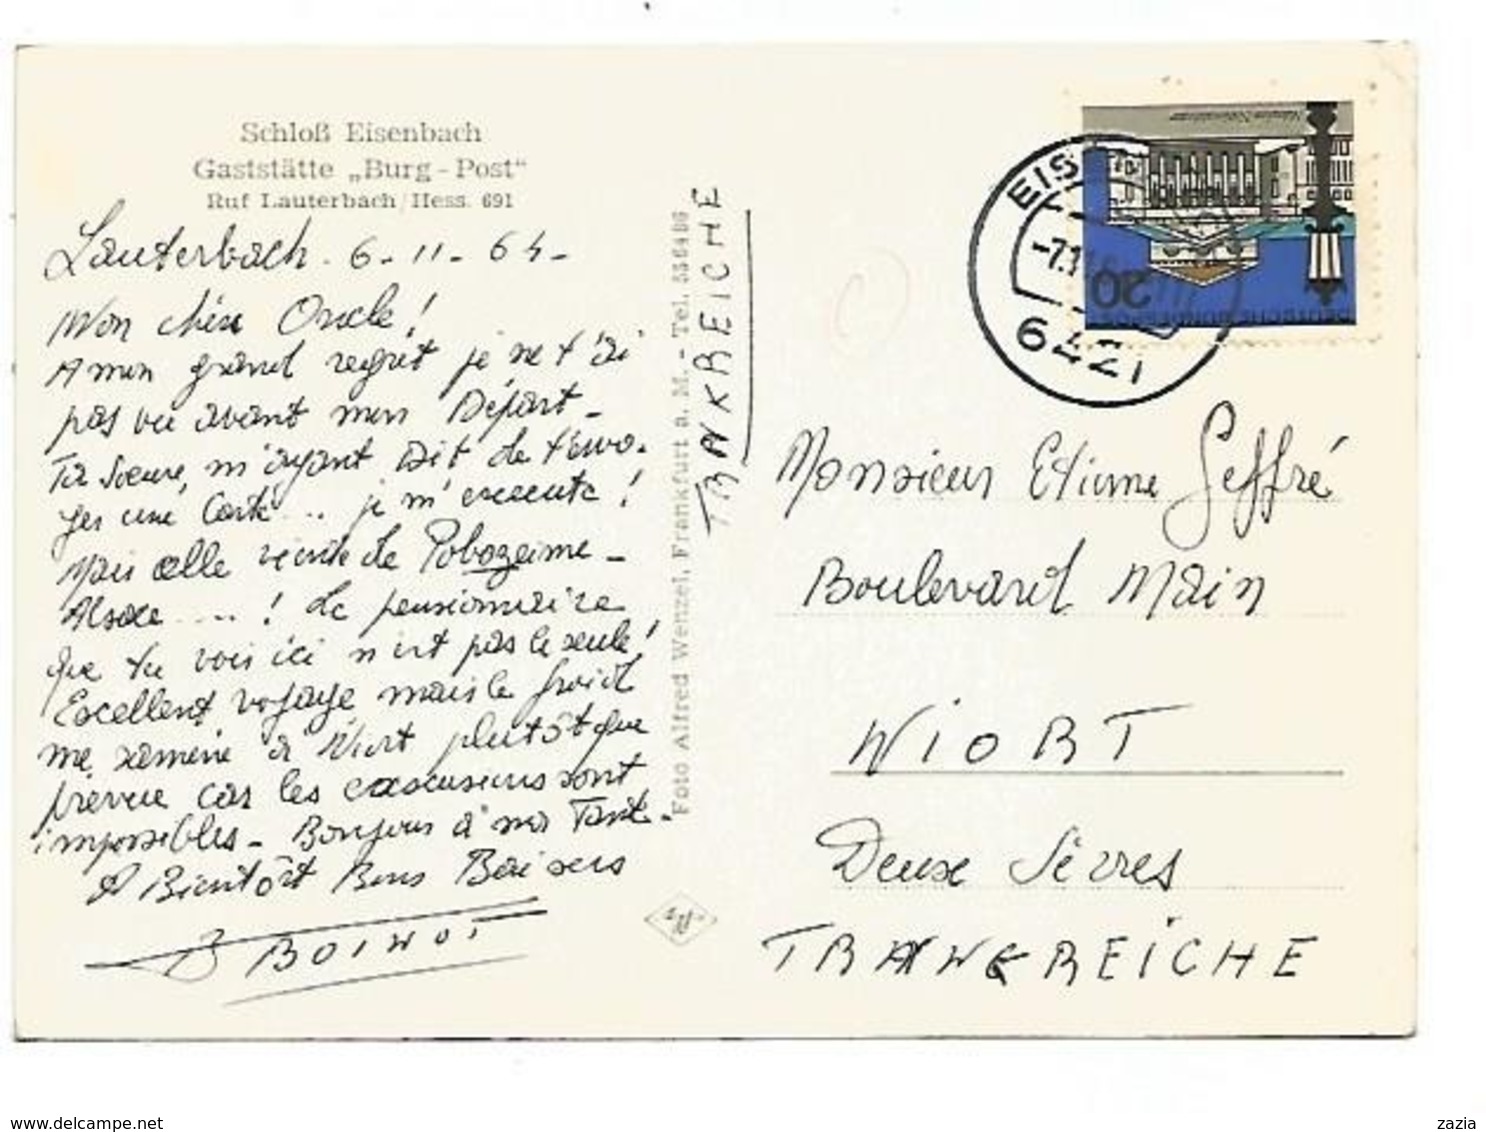 Schloß Eisenbach
Gaststätte „Burg-Post“
Ruf Lauterbach/Hess. 691
Lauterbach. 6-11-64-
Mon chéu Oncle!
A mon grand regrêt je ne t'ai
pas vu avant mon Départ-
Ta Soeure, m'ayant dit de t'envo-
yer une Carte... je m'execute!
Mais elle viente de
Alsace ....! La pensionnaire
que tu vois ici n'est pas la seule!
Excellent voyage mais le froid
me ramène à Niort plutôt que
prevue car les excursions sont
impossibles- Bonjour à ma Tante-
A Bientôt Bons Baisers
B BOINOT
Foto Alfred Wenzel, Frankfurt a. M. - Tel. 336486
FRANKREICHE
EIS
-7.1
6421
20
DEUTSCHE BUNDESPOST
Monsieur Etienne Geffré
Boulevard Main
NIORT
Deux Sèvres
FRANKREICHE
www.delcampe.net
zazia